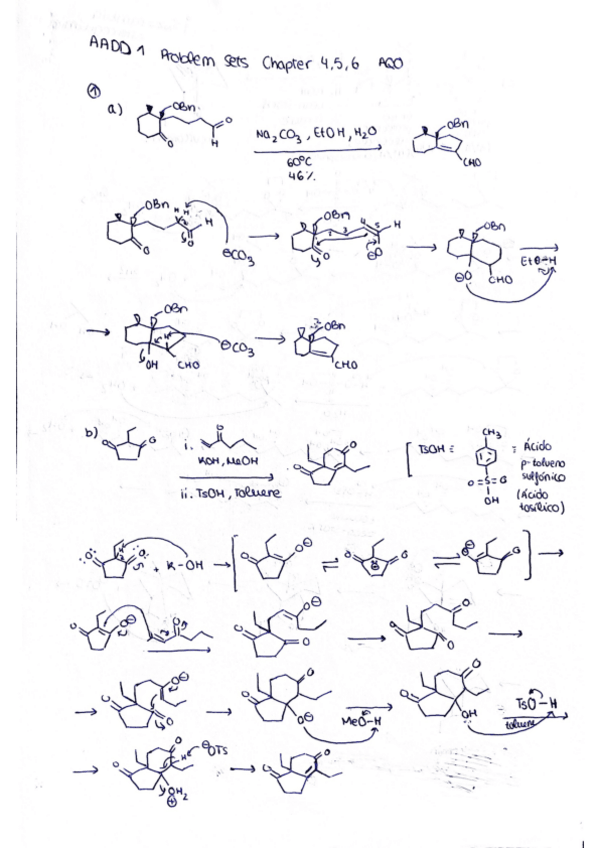 AADD 1 Problem sets Chapter 4,5,6 AQO
①
a) OBn O O H
Na2CO3, EtOH, H2O
60ºC
46%
OBn CHO
OBn H H H O O ⊖CO3
OBn 1 2 3 4 5 H O ⊖O
OBn ⊖O CHO EtO-H
OBn OH CHO ⊖CO3
OBn CHO
b) O O
i. O
KOH, MeOH
ii. TsOH, Toluene
O O
[ TsOH ≡ CH3 O=S=O OH ≡ Ácido
p-tolueno
sulfónico
(Ácido
tosílico)
O O H + K-OH
O O⊖ ⇌ O ⊖ O ⇌ ⊖O O
O O⊖ O O O O⊖ O O O
O O⊖ O O O O⊖ MeO-H O O OH TsO-H
toluene
O O H ⊖OTs OH2 ⊕ O O